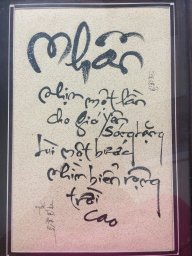 Nhẫn
nhịn một lần
cho gió yên
sóng lặng
lùi một bước
nhìn biển rộng
trời
cao